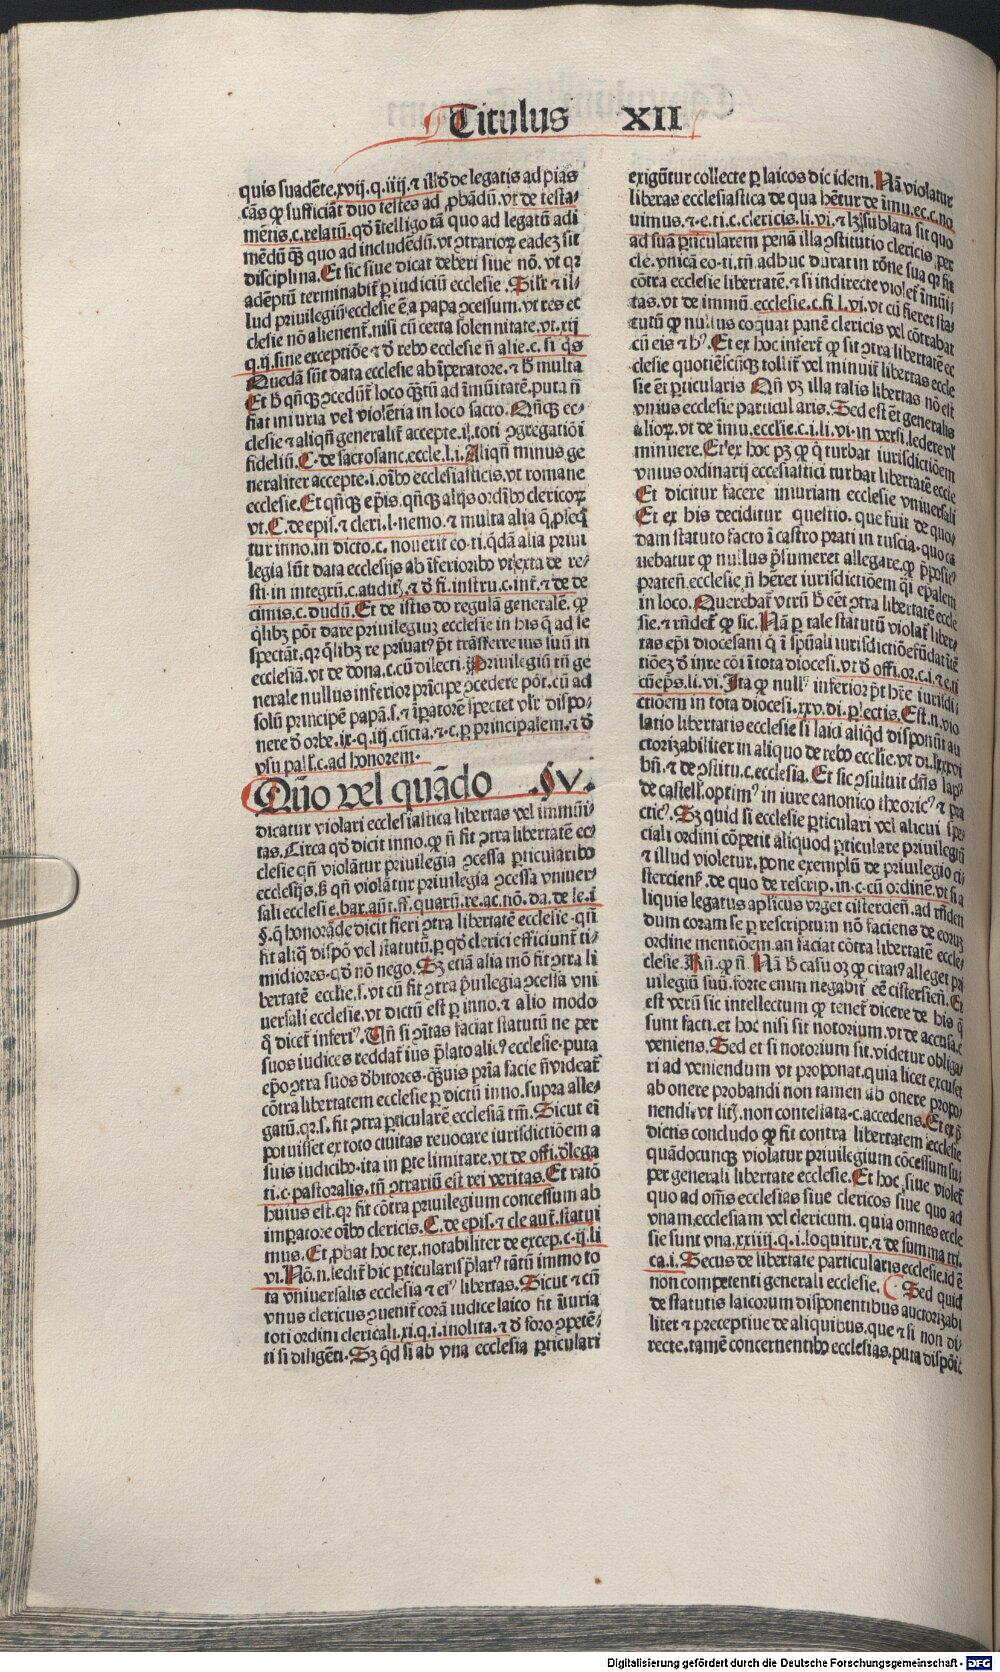 Titulus XII
quis suadēte.xvij.q.iiij.⁊ illd̄ de legatis ad pias
cās ꝙ sufficiāt duo testes ad ꝓbādū.vt de testa⸗
mētis.c.relatū.qd̄ ītelligo tā quo ad legatū adi
mēdū qȝ quo ad includēdū.vt ꝯtrarioꝝ eadeȝ sit
disciplina.Et sic siue dicat deberi siue nō.vt qꝛ
adēptū terminabit̄ ꝑ iudiciū ecclesie.Silr̄ ⁊ il⸗
lud priuilegiū ecclesie ē a papa ꝯcessum.vt res ec
clesie nō alienent̄.nisi cū certa solennitate.vt.xij
q.ij.sine exceptiōe ⁊ d̄ rebꝰ ecclesie n̄ alie.c.si q̄s
Quedā sūt data ecclesie ab īperatore.⁊ h̄ multa
Et h̄ qn̄qȝ ꝯcedūt̄ loco qȝtū ad īmūitatē.puta n̄
fiat iniuria vel violētia in loco sacro.Qn̄qȝ ec⸗
clesie ⁊ aliqn̄ generalit̄ accepte.i.toti ꝯgregatiōi
fideliū.C.de sacrosanc.eccle.l.i.Aliqn̄ minus ge
neraliter accepte.i.oībꝰ ecclesiasticis.vt romane
ecclesie.Et qn̄qȝ ep̄is.qn̄qȝ alijs ordībꝰ clericoꝝ
vt.C.de epis.⁊ cleri.l.nemo.⁊ multa alia q̄ ꝓseq̄
tur inno.in dicto.c.nouerit eo.ti.q̄dā alia priui
legia sūt data ecclesijs ab īferioribꝰ vt exta de re⸗
sti.in integrū.c.auditȩ.⁊ d̄ fi.instru.c.int̄.⁊ de de
cimis.c.dudū.Et de istis do regulā generalē.ꝙ
q̄libȝ pōt dare priuilegiuȝ ecclesie in his q̄ ad se
spectāt.qꝛ q̄libȝ re priuatꝰ p̄t trāsferre ius suū in
ecclesiā.vt de dona.c.cū dilecti.Priuilegiū tn̄ ge
nerale nullus inferior prīcipe ꝯcedere pōt.cū ad
solū principē papā.s.⁊ īpatorē spectet vlr̄ dispo⸗
nere d̄ orbe.ix.q.iij.cūcta.⁊.c.ꝑ principalem.⁊ d̄
vsu pall̄.c.ad honorem.
Qūo vel quādo .§V.
dicatur violari ecclesiastica libertas vel immūi⸗
tas.Circa qd̄ dicit inno.ꝙ n̄ fit ꝯtra libertatē ec⸗
clesie qn̄ violātur priuilegia ꝯcessa ꝑticularibꝰ
ecclesijs.s̄ qn̄ violātur priuilegia ꝯcessa vniuer⸗
sali ecclesie.bar.aūt.ff.quarū.re.ac.nō.da.de le.i
§.q̄ honorāde dicit fieri ꝯtra libertatē ecclesie.qn̄
fit aliq̄ dispō vel statutū.ꝑ qd̄ clerici efficiunt̄ ti⸗
midiores.qd̄ nō nego.Sȝ etiā alia mō fit ꝯtra li
bertatē eccl̄ie.s.vt cū fit ꝯtra p̄uilegia ꝯcessa vni
uersali ecclesie.vt dictū est ꝑ inno.⁊ alio modo
q̄ dicet̄ inferiꝰ.Un̄ si ꝯītas faciat statutū ne per
suos iudices reddat̄ ius p̄lato alicꝰ ecclesie.puta
ep̄o ꝯtra suos d̄bitores.qȝuis pria facie n̄ videat̄
cōtra libertatem ecclesie ꝑ dictū inno.supra alle⸗
gatū.qꝛ.s.fit ꝯtra ꝑticularē ecclesiā tm̄.Sicut ei
potuisset ex toto ciuitas reuocare iurisdictiōem a
suis iudicibꝰ.ita in ꝑte limitare.vt de offi.d̄lega
ti.c.pastoralis.tn̄ ꝯtrariū est rei veritas.Et ratō
huius est.qꝛ fit cōtra priuilegium concessum ab
imꝑatore oībꝰ clericis.C.de epis.⁊ cle aut̄.statui
mus.Et ꝓbat hoc tex.notabiliter de excep.c.ij.li
vi.Nō.n.ledit̄ hic ꝑticularis p̄latꝰ tātū immo to
ta vniuersalis ecclesia ⁊ eiꝰ libertas.Sicut ⁊ cū
vnus clericus ꝯuenit̄ corā iudice laico fit iniuria
toti ordini clericali.xi.q.i.inolita.⁊ d̄ foro ꝯpetē⸗
ti si diligēti.Sȝ qd̄ si ab vna ecclesia ꝑticulari
exigūtur collecte ꝑ laicos dic idem.Nā violatur
liberas ecclesiastica de qua hētur de īmu.ec.c.no
uimus.⁊ e.ti.c.clericis.li.vi.⁊ lȝ sublata sit quo
ad suā ꝑticularem penā illa ꝯstitutio clericis per
cle.vnicā eo.ti.tn̄ adhuc durat in rōne sua qꝛ fit
cōtra ecclesie libertatē.⁊ si indirecte violet̄ īmūi⸗
tas.vt de immū.ecclesie.c.fi l.vi.vt cū fieret sta⸗
tutū ꝙ nullus coquat panē clericis vel cōtrahat
cū eis ⁊ hꝰ.Et ex hoc infert̄ ꝙ sit ꝯtra libertatē ec
clesie quotiēscūqȝ tollit̄ vel minuit̄ libertas eccle
sie ēt ꝑticularis Qn̄ vȝ illa talis libertas nō est
vnius ecclesie particularis.Sed est ēt generalis
alioꝝ.vt de īmu.eccl̄ie.c.i.li.vi.in versi.ledere vl̄
minuere.Et ex hoc pȝ ꝙ q̄ turbat iurisdictiōem
vnius ordinarij eccesiastici turbat libertatē eccle
Et dicitur facere iniuriam ecclesie vniuersali
Et ex his deciditur questio.que fuit de quo⸗
dam statuto facto ī castro prati in tuscia.quo ca
uebatur ꝙ nullus p̄sumeret allegare.ꝙ p̄posiꝰ
praten̄.ecclesie n̄ hēret iurisdictiōem q̄si ep̄alem
in loco.Querebat̄ vtrū h̄ eēt ꝯtra libertatē eccle
sie.⁊ rn̄det̄ ꝙ sic.Nā ꝑ tale statutū violat̄ liber⸗
tas ep̄i diocesani q̄ ī sp̄uali iurisdictiōe fūdat ītē
tiōeȝ d̄ iure cōi ī tota diocesi.vt d̄ offi.or.c.i.⁊ c.ij
cū ep̄s.li.vi.Ita ꝙ nullꝰ inferior p̄t hr̄e iurisdi⸗
ctiōem in tota diocesi.xxv.di.ꝑlectis.Est.n.vio
latio libertatis ecclesie si laici aliq̄d disponūt au
ctorizabiliter in aliquo de rebꝰ eccl̄ie.vt di.lxxxvi
bn̄.⁊ de ꝯstitu.c.ecclesia.Et sic ꝯsuluit dn̄s lapꝰ
de castell̄.optimꝰ in iure canonico theoricꝰ ⁊ pra
cticꝰ.Sȝ quid si ecclesie ꝑticulari vel alicui spe⸗
ciali ordini cōpetit aliquod ꝑticulare priuilegiū
⁊ illud violetur.pone exemplū de priuilegio ci⸗
sterciens̄.de quo de rescrip.in.c.cū ordinē.vt si a
liquis legatus aplicus vrget cistercien̄.ad rn̄den
dum coram se ꝑ rescriptum nō faciens de eoruȝ
ordine mentiōem.an faciat cōtra libertatē eccle⸗
clesie.Rn̄.ꝙ n̄.Nā h̄ casu oȝ ꝙ citatꝰ alleget pri
uilegiū suū.forte enim negabit̄ eē cistersien̄.Et
est verū sic intellectum ꝙ tenet̄ dicere de his q̄
sunt facti.et hoc nisi sit notorium.vt de accusa.c
veniens.Sed et si notorium sit.videtur obliga⸗
ri ad veniendum vt proponat.quia licet excuset
ab onere probandi non tamen ab onere propo⸗
nendi.vt litȩ.non contestata.c.accedens.Et ex p̄
dictis concludo ꝙ fit contra libertatem ecclesie
quādocunqȝ violatur priuilegium cōcessum su⸗
per generali libertate ecclesie.Et hoc siue violet̄
quo ad om̄s ecclesias siue clericos siue quo ad
vnam ecclesiam vel clericum.quia omnes eccle
sie sunt vna.xxiiij.q.i.loquitur.⁊ de summa tri.
ca.i.Secus de libertate particularis ecclesie.id ē
non competenti generali ecclesie. Sed quid
de statutis laicorum disponentibus auctorizabi
liter ⁊ preceptiue de aliquibus.que ⁊ si non di⸗
recte.tamē concernentibꝰ ecclesias.puta dispōit
Digitalisierung gefördert durch die Deutsche Forschungsgemeinschaft - DFG